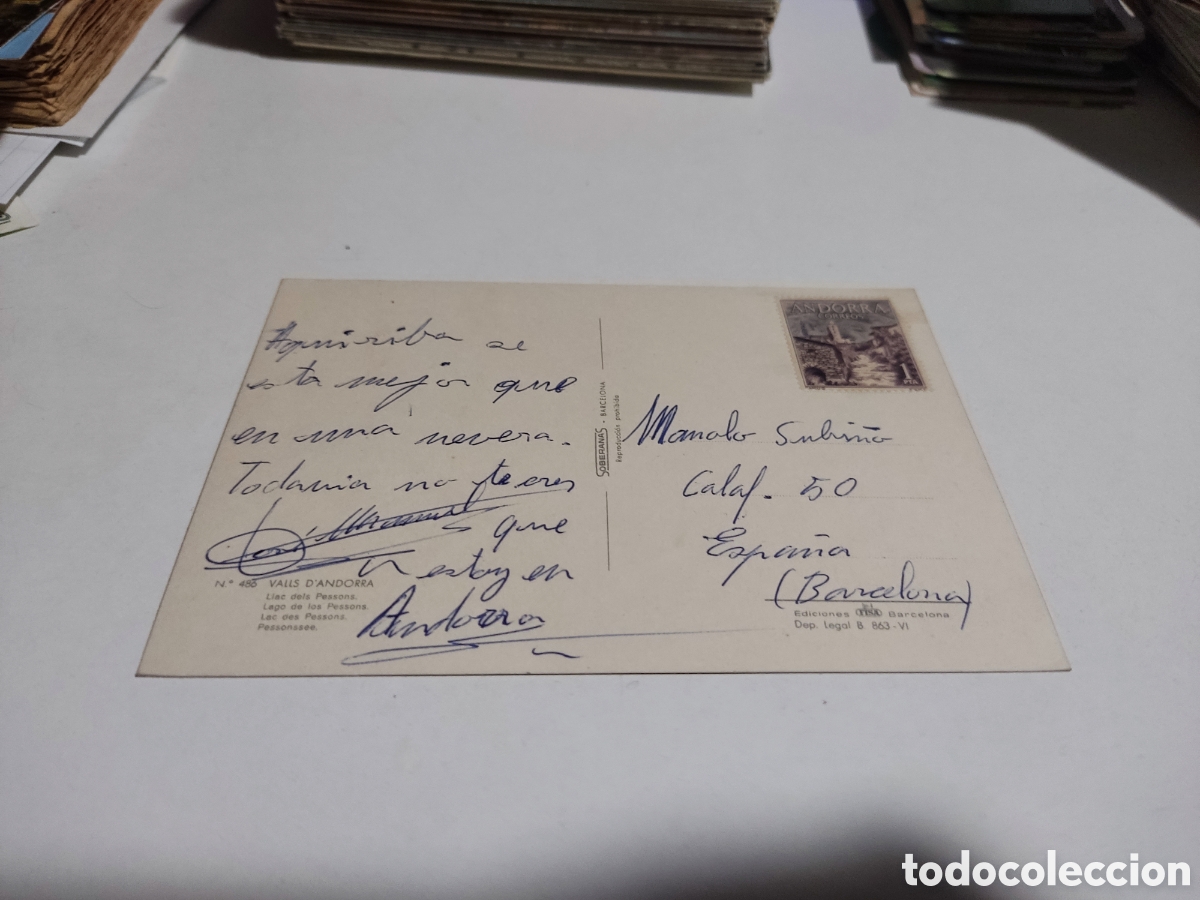 Aquiriba se
esta mejor que
en una nevera.
Todania no te cres
que
estoy en
Andorra
N.º 486 VALLS D'ANDORRA
Llac dels Pessons.
Lago de los Pessons.
Lac des Pessons.
Pessonssee.
SOBERANAS - BARCELONA
Reproducción prohibida
ANDORRA
CORREOS
1
PTA
Manolo Subiña
Calaf. 50
España
(Barcelona)
Ediciones FISA Barcelona
Dep. Legal B. 863-VI
todocoleccion